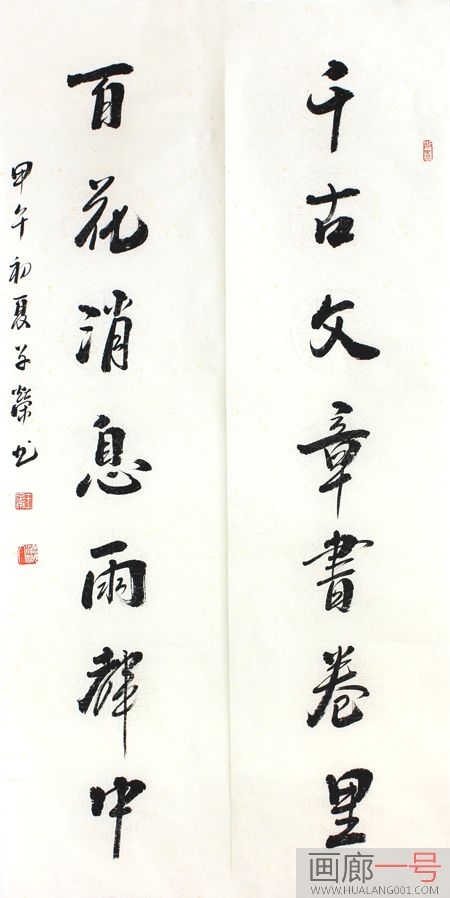 千古文章書卷里
百花消息雨聲中
甲午初夏子榮书
画廊一号
WWW.HUALANG001.COM